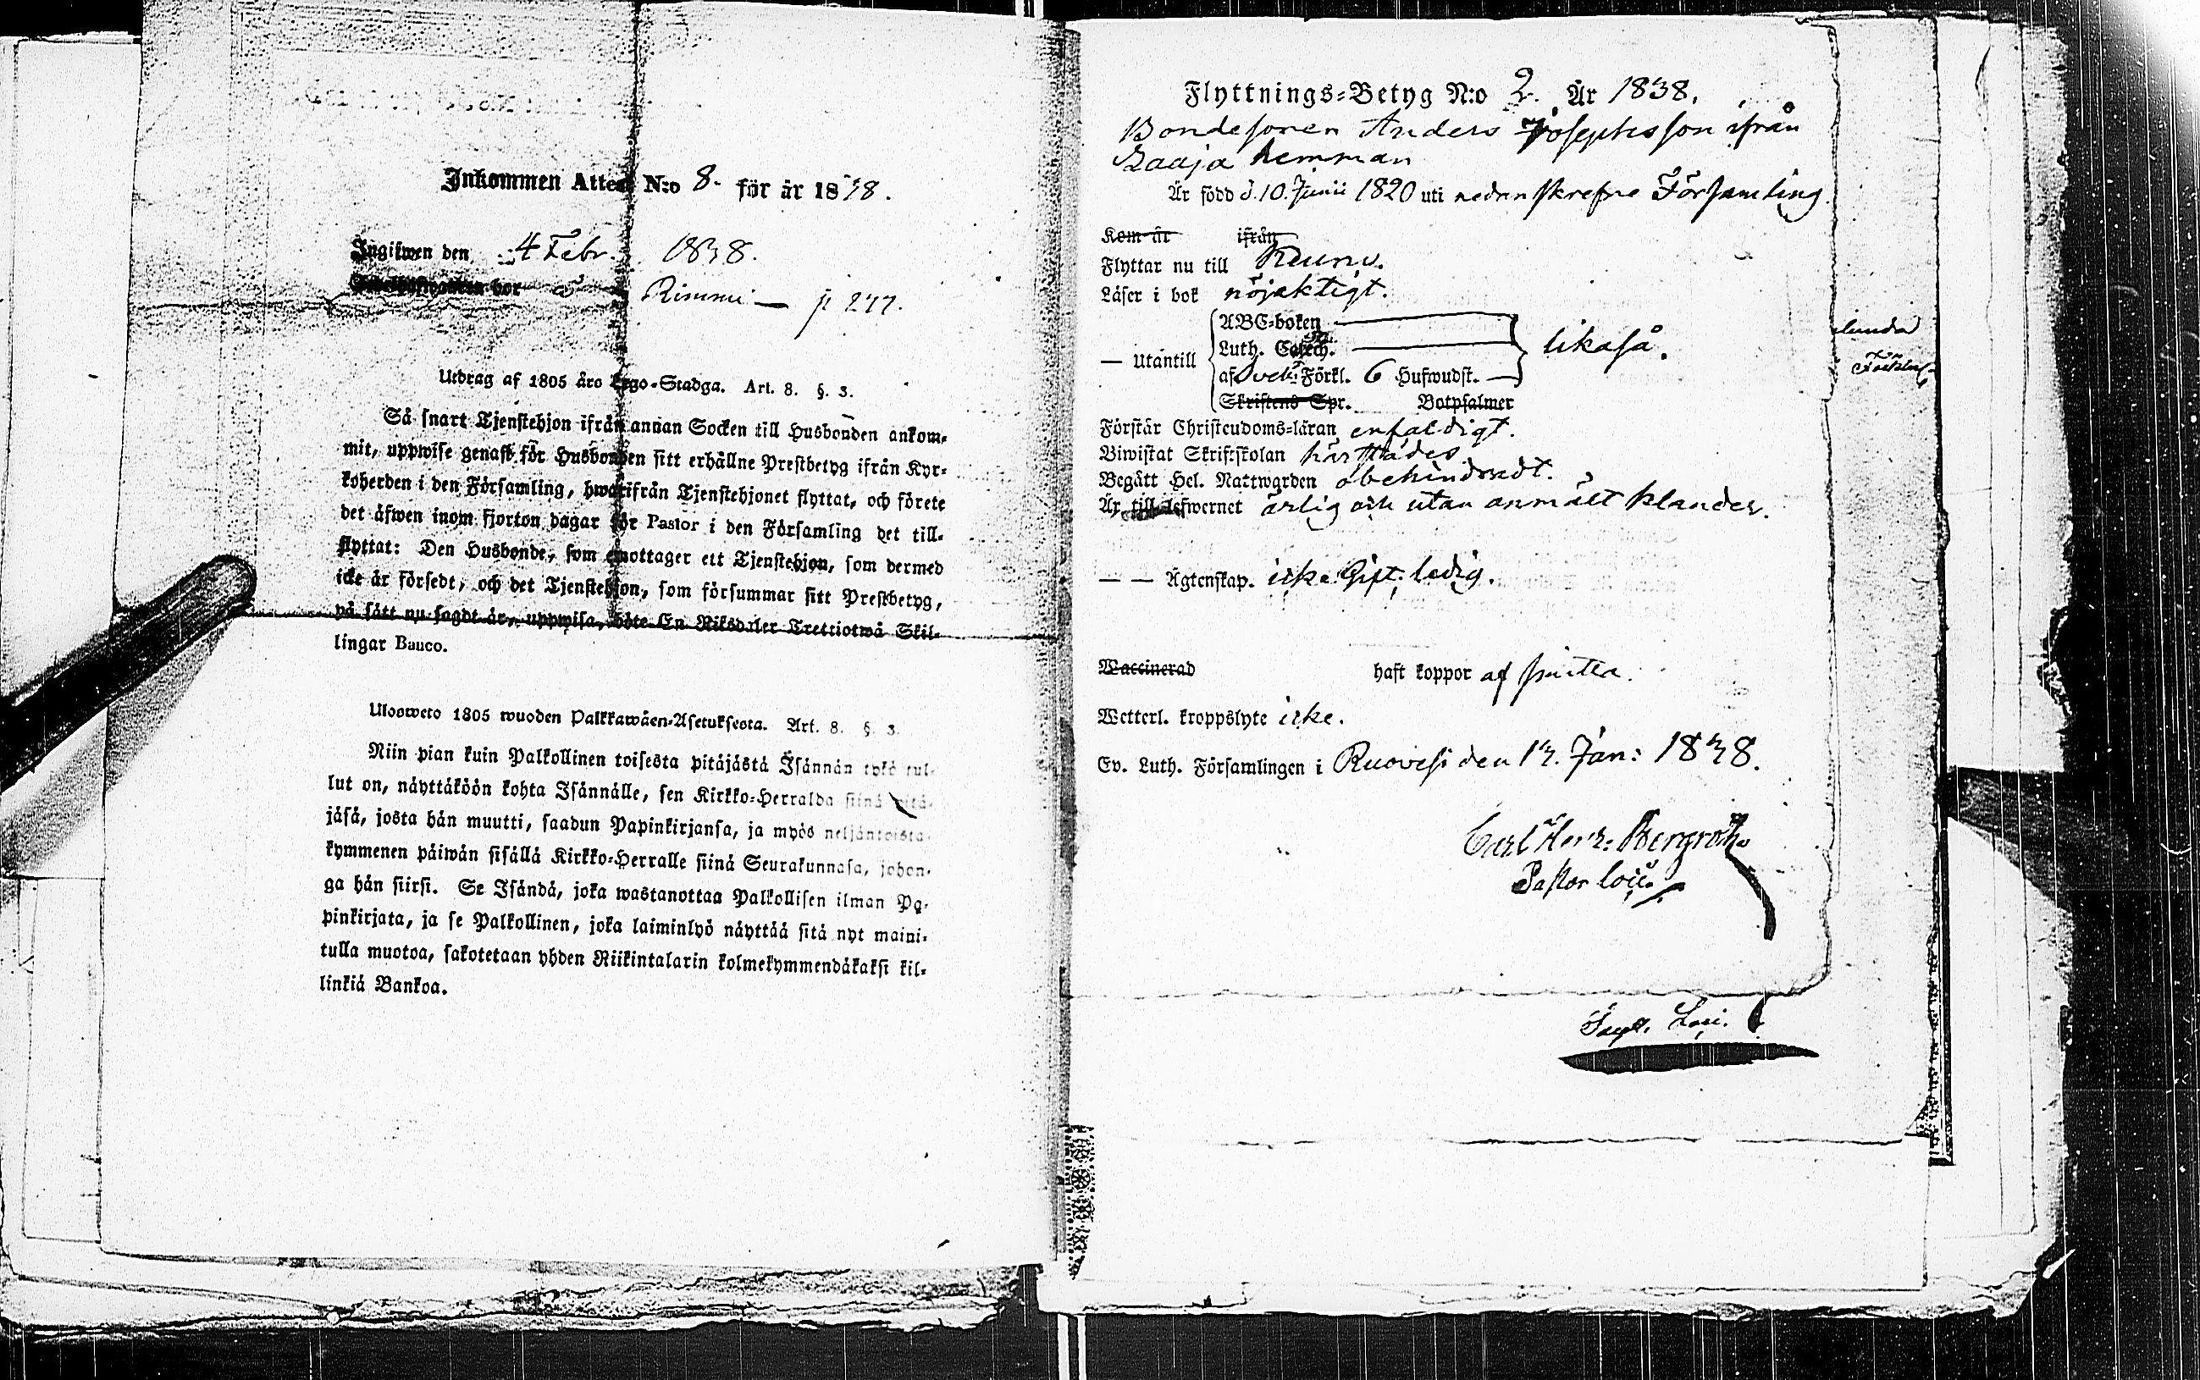 Inkommen Attest N:o 8. för år 1838.
Ingifwen den 4 Febr. 1838.
Rimmi — p 277.
Utdrag af 1805 års Lego-Stadga. Art. 8. §. 3.
Så snart Tjenstehjon ifrån annan Socken till Husbonden ankom-
mit, uppwise genast för Husbonden sitt erhållne Prestbetyg ifrån Kyr-
koherden i den Församling, hwarifrån Tjenstehjonet flyttat, och förete
det äfwen inom fjorton dagar för Pastor i den Församling det till-
flyttat: Den Husbonde, som emottager ett Tjenstehjon, som dermed
icke är försedt, och det Tjenstehjon, som försummar sitt Prestbetyg,
på sätt nu sagdt är, uppwisa, böte En Riksdaler Trettiotwå Skil-
lingar Banco.
Ulosweto 1805 wuoden Palkkawäen-Asetuksesta. Art. 8. §. 3.
Niin pian kuin Palkollinen toisesta pitäjästä Isännän tykö tul-
lut on, näyttäköön kohta Isännälle, sen Kirkko-Herralda siinä pitä-
jäsä, josta hän muutti, saadun Papinkirjansa, ja myös neljäntoista-
kymmenen päiwän sisällä Kirkko-Herralle siinä Seurakunnasa, johon-
ga hän siirsi. Se Isändä, joka wastanottaa Palkollisen ilman Pa-
pinkirjata, ja se Palkollinen, joka laiminlyö näyttää sitä nyt maini-
tulla muotoa, sakotetaan yhden Riikintalarin kolmekymmendäkaksi kil-
linkiä Bankoa.
Flyttnings-Betyg N:o 2. År 1838.
Bondesonen Anders Josephsson ifrån
Raaja hemman
Är född d. 10. Junii 1820 uti nedanskrefne Församling
Kom år ifrån
Flyttar nu till Keuru.
Läser i bok nöjaktigt.
— Utantill
ABC-boken
Luth. Catech.
af Sveb. Förkl. 6 Hufwudst. —
likaså.
Skriftens Spr. Botpsalmer
Förstår Christendoms-läran enfaldigt.
Biwistat Skriftskolan härstädes
Begått Hel. Nattwarden obehindradt.
Är till lefwernet ärlig och utan anmält klander.
— — Ägtenskap. icke Gift, ledig.
Waccinerad haft koppor af
Wetterl. kroppslyte icke.
Ev. Luth. Församlingen i Ruovesi den 13. Jan: 1838.
Carl Henr: Bergroth
Pastor loci.